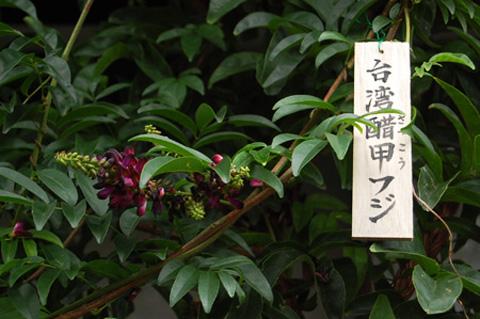 台湾醋甲フジ
さっこう